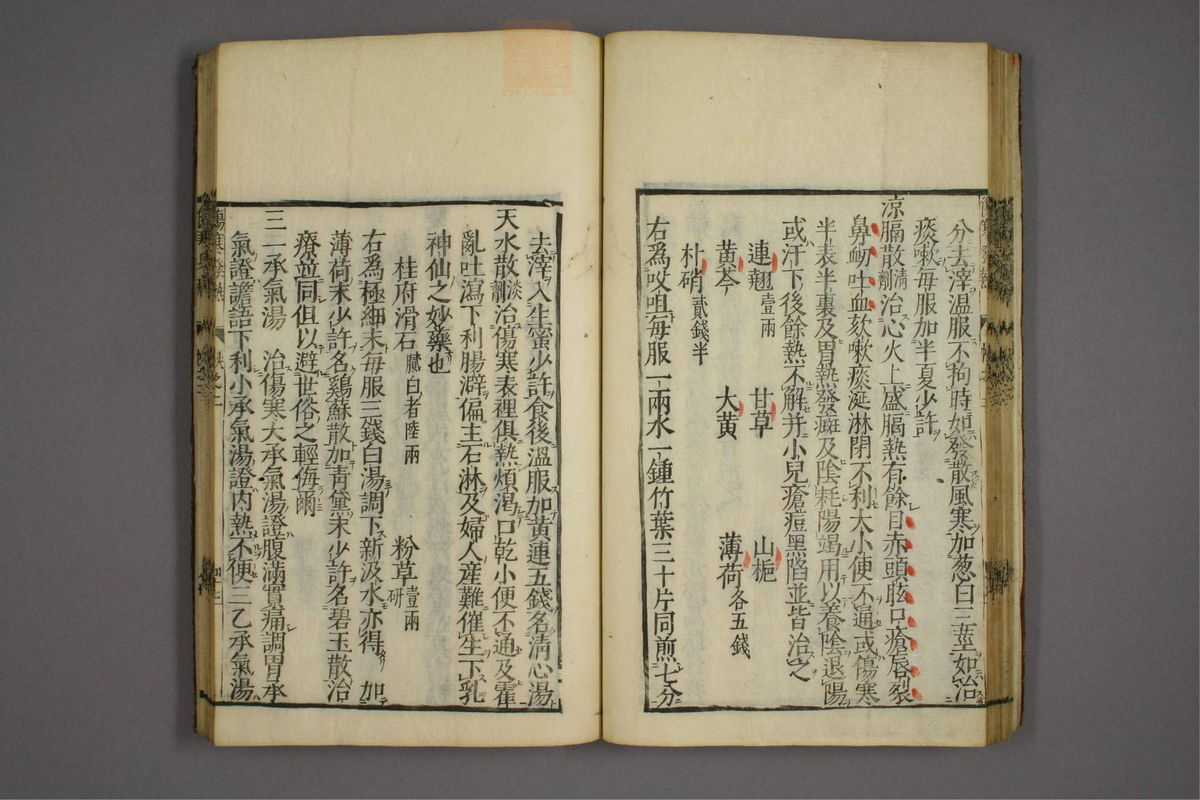 分去滓溫服不拘時如發散風寒加葱白三莖如治
痰嗽每服加半夏少許
涼膈散清劑治心火上盛膈熱有餘目赤頭眩口瘡唇裂
鼻衂吐血欬嗽痰涎淋閉不利大小便不通或傷寒
半表半裏及胃熱發癍及陰耗陽竭用以養陰退陽
或汗下後餘熱不解并小兒瘡痘黑陷並皆治之
連翹壹兩 甘草 山梔
黃芩 大黃 薄荷各五錢
朴硝貳錢半
右爲㕮咀每服一兩水一鍾竹葉三十片同煎七分
去滓入生蜜少許食後溫服加黃連五錢名清心湯
天水散淡劑治傷寒表裡俱熱煩渴口乾小便不通及霍
亂吐瀉下利腸澼偏主石淋及婦人産難催生下乳
神仙之妙藥也
桂府滑石膩白者陸兩 粉草壹兩研
右爲極細末每服三錢白湯調下新汲水亦得 如
薄荷末少許名鷄蘇散加青黛末少許名碧玉散治
療並同但以避世俗之輕侮爾
三一承氣湯 治傷寒大承氣湯證腹滿實痛調胃承
氣證譫語下利小承氣湯證内熱不便三乙承氣湯